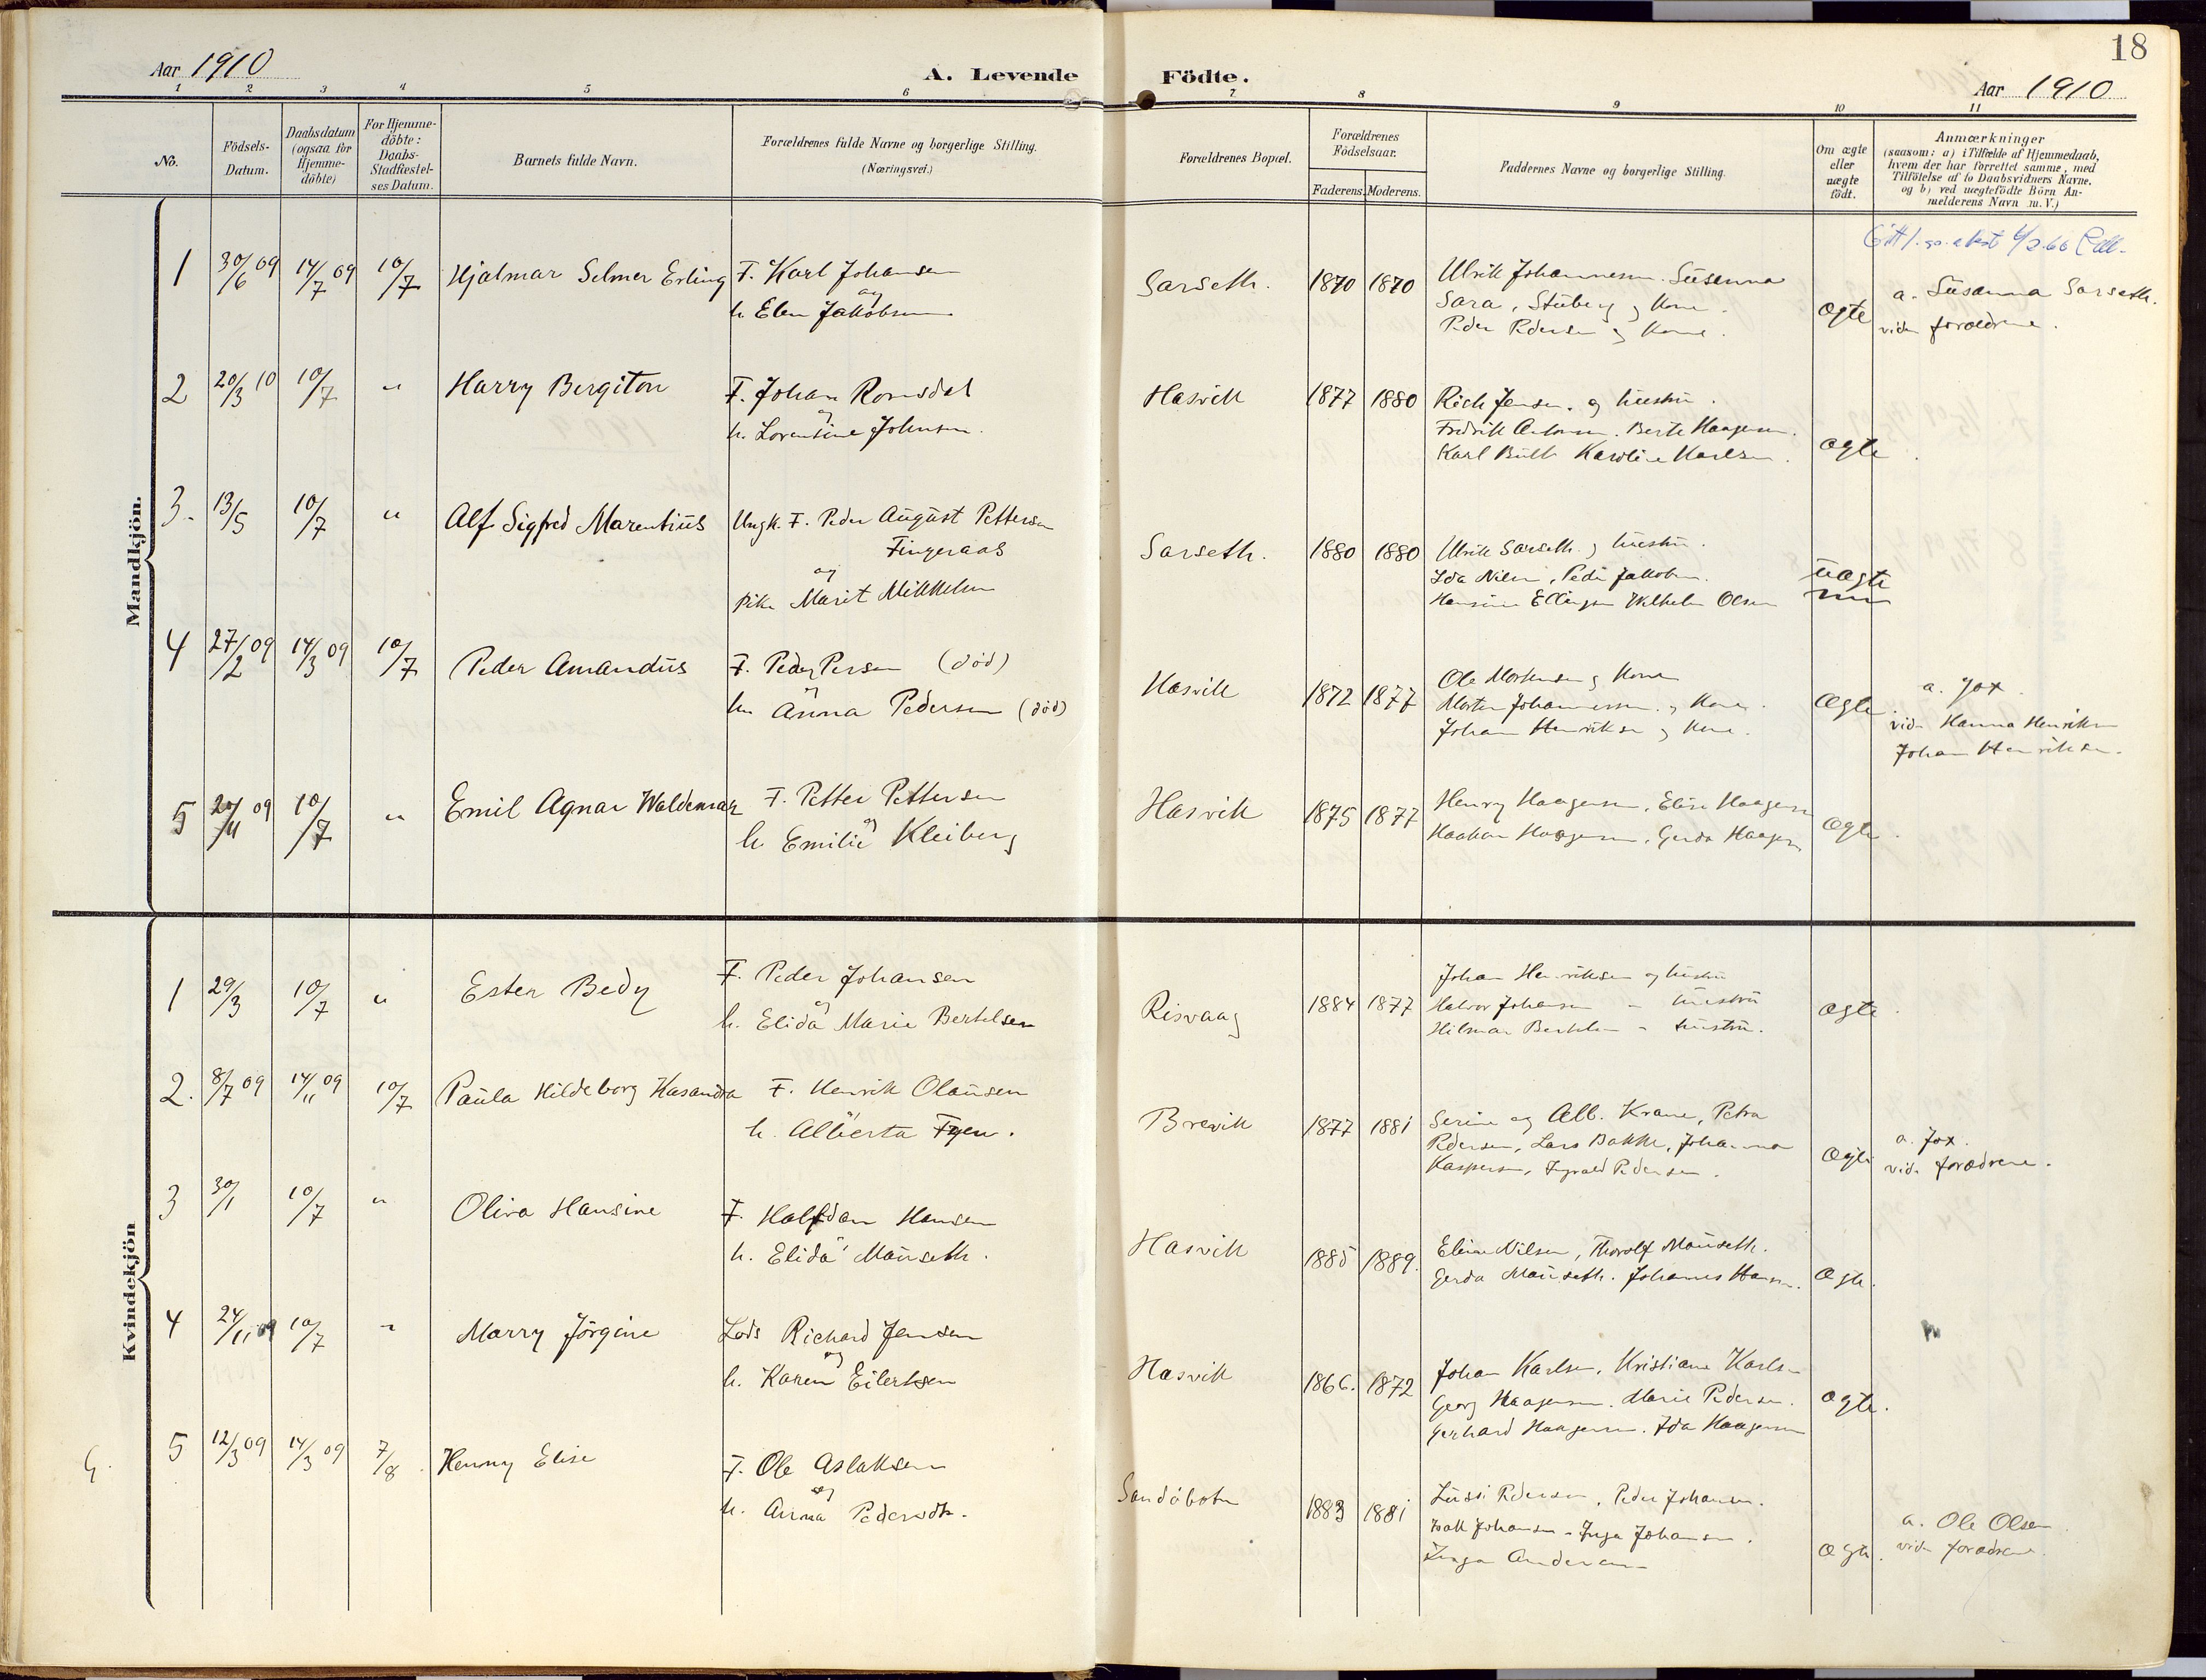 18
Aar 1910
A. Levende Födte.
Aar 1910
1 2 3 4 5 6 7 8 9 10 11
No.
Födsels-
Datum.
Daabsdatum
(ogsaa for
Hjemme-
döbte)
For Hjemme-
döbte:
Daabs-
Stadfæstel-
ses Datum.
Barnets fulde Navn.
Forældrenes fulde Navne og borgerlige Stilling.
(Næringsvei.)
Forældrenes Bopæl.
Forældrenes
Födselsaar.
Faderens. Moderens.
Faddernes Navne og borgerlige Stilling.
Om ægte
eller
uægte
födt.
Anmærkninger
(saasom: a) i Tilfælde af Hjemmedaab,
hvem der har forrettet samme, med
Tilföielse af to Daabsvidners Navne,
og b) ved uægtefödte Börn An-
melderens Navn m. V.)
Mandkjön.
1 30/6 09 14/7 09 10/7 Hjalmar Selmer Erling F. Karl Johansen
og
h. Elen Jakobsen
Sarseth. 1870 1870 Ulrik Johannesen. Susanna
Sara, Stuberg og Kone.
Peder Pedersen og Kone.
ægte
a. Susanna Sarseth.
vidn forældrene.
2 20/3 10 10/7 " Harry Bergiton F. Johan Romsdal
og
h. Lorentine Johnsen.
Hasvik 1877 1880 Rich Jensen. og hustru.
Fredrik Antonsen. Berte Haagensen.
Karl Bull Karoline Karlsen.
ægte.
3. 13/5 10/7 " Alf Sigfred Marentius Ungk. F. Peder August Pettersen
Fingeraas
og
pike Marit Mikkelsen
Sarseth. 1880 1880 Ulrik Sarseth. og hustru.
Ida Nilsen, Peder Jakobsen.
Hansine Ellingsen Wilhelm Olsen
uægte
4 27/2 09 14/3 09 10/7 Peder Amandus F. Peder Persen (död)
og
h. Anna Pedersen (död)
Hasvik 1872 1877 Ole Mortensen og Kone
Morten Johannessen. og Kone.
Johan Henriksen og Kone.
ægte.
a. Jox.
vidn Hanna Henriksen
Johan Henriksen.
5 09 10/7 " Emil Agnar Waldemar F. Petter Pettersen
og
h. Emilie Kleiberg
Hasvik 1875 1877 Henry Haagensen, Elise Haagensen
Haakon Haagensen, Gerda Haagensen
ægte.
Kvindekjön
1 29/3 10/7 " Ester Bedy F. Peder Johansen
og
h. Elida Marie Bertelsen
Risvaag 1884 1877 Johan Henriksen og hustru
Halvor Johansen - hustru
Hilmar Bertelsen - hustru.
ægte.
2. 8/7 09 14/11 09 10/7 Paula Hildeborg Kasandra F. Henrik Olausen
og
h. Alberta Fyen.
Brevik 1877 1881 Serine og Alb. Krane, Petra
Pedersen, Lars Bakke, Johanna
Kaspersen, Ingvald Pedersen.
ægte
a. Jox.
vidn forældrene.
3 30/1 10/7 " Oliva Hansine F. Halfdan Hansen
og
h. Elida Mauseth.
Hasvik 1885 1889. Eline Nilsen, Thorolf Mauseth.
Gerda Mauseth. Johannes Hansen.
ægte.
4 24/11 09 10/7 " Marry Jörgine Lods Richard Jensen
og
h. Karen Eilertsen
Hasvik 1866. 1872 Johan Karlsen, Kristiane Karlsen
Georg Haagensen. Marie Pedersen.
Gerhard Haagensen. Ida Haagensen
ægte.
G. 5 12/3 09 14/3 09 7/8 Henny Elise F. Ole Aslaksen
og
h. Anna Pedersdtr.
Sandöbotn 1883 1881 Lussi Pedersen, Peder Johansen.
Johansen - Inga Johansen.
Inga Andersen
ægte.
a. Ole Olsen
vidn forældrene.